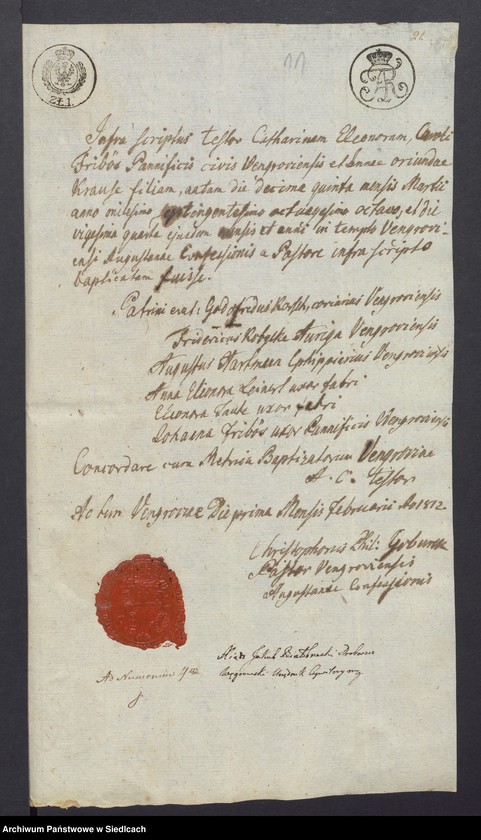 21
11
ZŁ 1.
FAR
Infra scriptus testor Catharinam Eleonoram, Caroli
Fribös Pannificis civis Vengroviensis et Annae oriundae
Krause filiam, natam die decima quinta mensis Martii
anno milesimo octuagesimo octavo, et die
vigesima quarta ejusdem mensis et anni in templo Vengrovi-
ensi Augustanae Confessionis a Pastore infra scripto
baptizatam fuisse.
Patrini erant: Godofredus Korsch, coriarius Vengroviensis
Fridericus Kobylke Auriga Vengroviensis
Augustus Hartmann Ephippiarius Vengroviensis
Anna Eleonora Leinert uxor fabri
Eleonora Taube uxor fabri
Johanna Fribös uxor Pannificis Vengroviensis
Concordare cum Metrica Baptizatorum Vengroviae
A. C. testor
Actum Vengroviae Die prima Mensis Februarii Ao 1812
Christophorus Phil:
Pastor Vengroviensis
Augustanae Confessionis
Xiądz Jakub Proboszcz
Węgrowski Urzędnik Cywilny
Ad Numerum
Archiwum Państwowe w Siedlcach